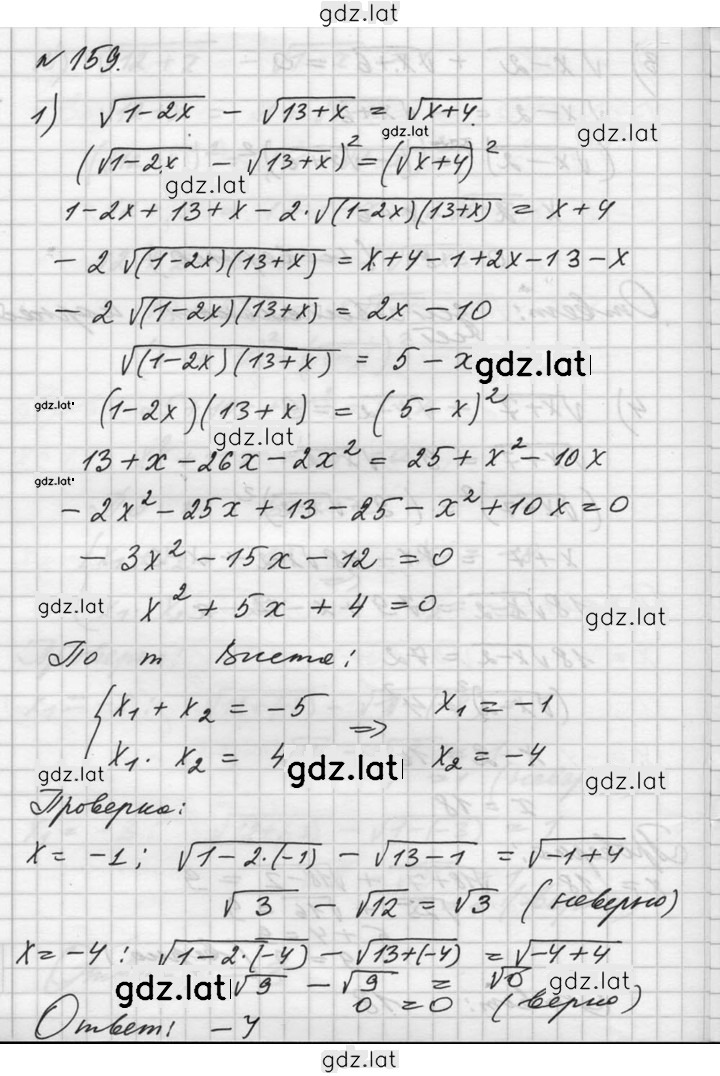 gdz.lat
№ 159.
1) √(1-2x) - √(13+x) = √(x+4)
gdz.lat
gdz.lat
(√(1-2x) - √(13+x))² = (√(x+4))²
gdz.lat
1-2x+13+x-2·√((1-2x)(13+x)) = x+4
-2√((1-2x)(13+x)) = x+4-1+2x-13-x
-2√((1-2x)(13+x)) = 2x-10
√((1-2x)(13+x)) = 5-x
gdz.lat
gdz.lat
(1-2x)(13+x) = (5-x)²
gdz.lat
13+x-26x-2x² = 25+x²-10x
gdz.lat
-2x²-25x+13-25-x²+10x=0
-3x²-15x-12=0
gdz.lat
x²+5x+4=0
gdz.lat
По т Виета:
{x₁+x₂=-5 ⇒ x₁=-1
x₁·x₂=4 x₂=-4
gdz.lat
gdz.lat
gdz.lat
Проверка:
x=-1; √(1-2·(-1)) - √(13-1) = √(-1+4)
√3 - √12 = √3 (неверно)
x=-4: √(1-2·(-4)) - √(13+(-4)) = √(-4+4)
gdz.lat
√9 - √9 = √0
gdz.lat
0=0 (верно)
Ответ: -4
gdz.lat